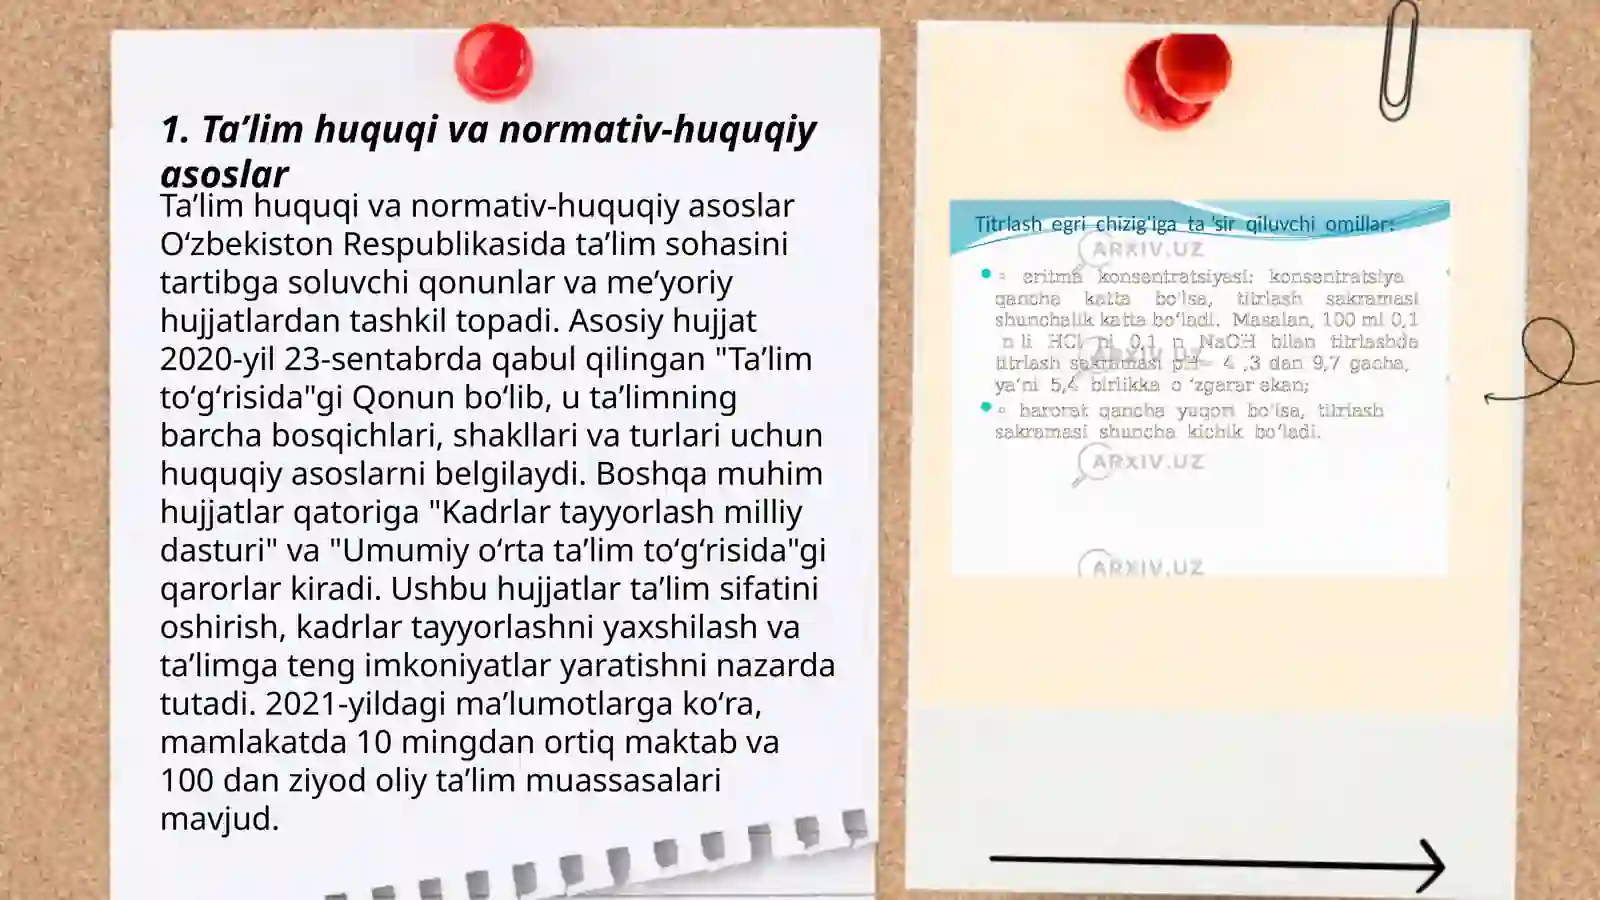 1. Ta’lim huquqi va normativ-huquqiy
asoslar
Ta’lim huquqi va normativ-huquqiy asoslar
O‘zbekiston Respublikasida ta’lim sohasini
tartibga soluvchi qonunlar va me’yoriy
hujjatlardan tashkil topadi. Asosiy hujjat
2020-yil 23-sentabrda qabul qilingan "Ta’lim
to‘g‘risida"gi Qonun bo‘lib, u ta’limning
barcha bosqichlari, shakllari va turlari uchun
huquqiy asoslarni belgilaydi. Boshqa muhim
hujjatlar qatoriga "Kadrlar tayyorlash milliy
dasturi" va "Umumiy o‘rta ta’lim to‘g‘risida"gi
qarorlar kiradi. Ushbu hujjatlar ta’lim sifatini
oshirish, kadrlar tayyorlashni yaxshilash va
ta’limga teng imkoniyatlar yaratishni nazarda
tutadi. 2021-yildagi ma’lumotlarga ko‘ra,
mamlakatda 10 mingdan ortiq maktab va
100 dan ziyod oliy ta’lim muassasalari
mavjud.
Titrlash egri chizig'iga ta 'sir qiluvchi omillar:
ARXIV.UZ
▫ eritma konsentratsiyasi: konsentratsiya
qancha katta bo‘lsa, titrlash sakramasi
shunchalik katta bo‘ladi. Masalan, 100 ml 0,1
n li HCl ni 0,1 n NaOH bilan titrlashda
titrlash sakramasi pH= 4 ,3 dan 9,7 gacha,
ya’ni 5,4 birlikka o ‘zgarar ekan;
▫ harorat qancha yuqori bo‘lsa, titrlash
sakramasi shuncha kichik bo‘ladi.
ARXIV.UZ
ARXIV.UZ